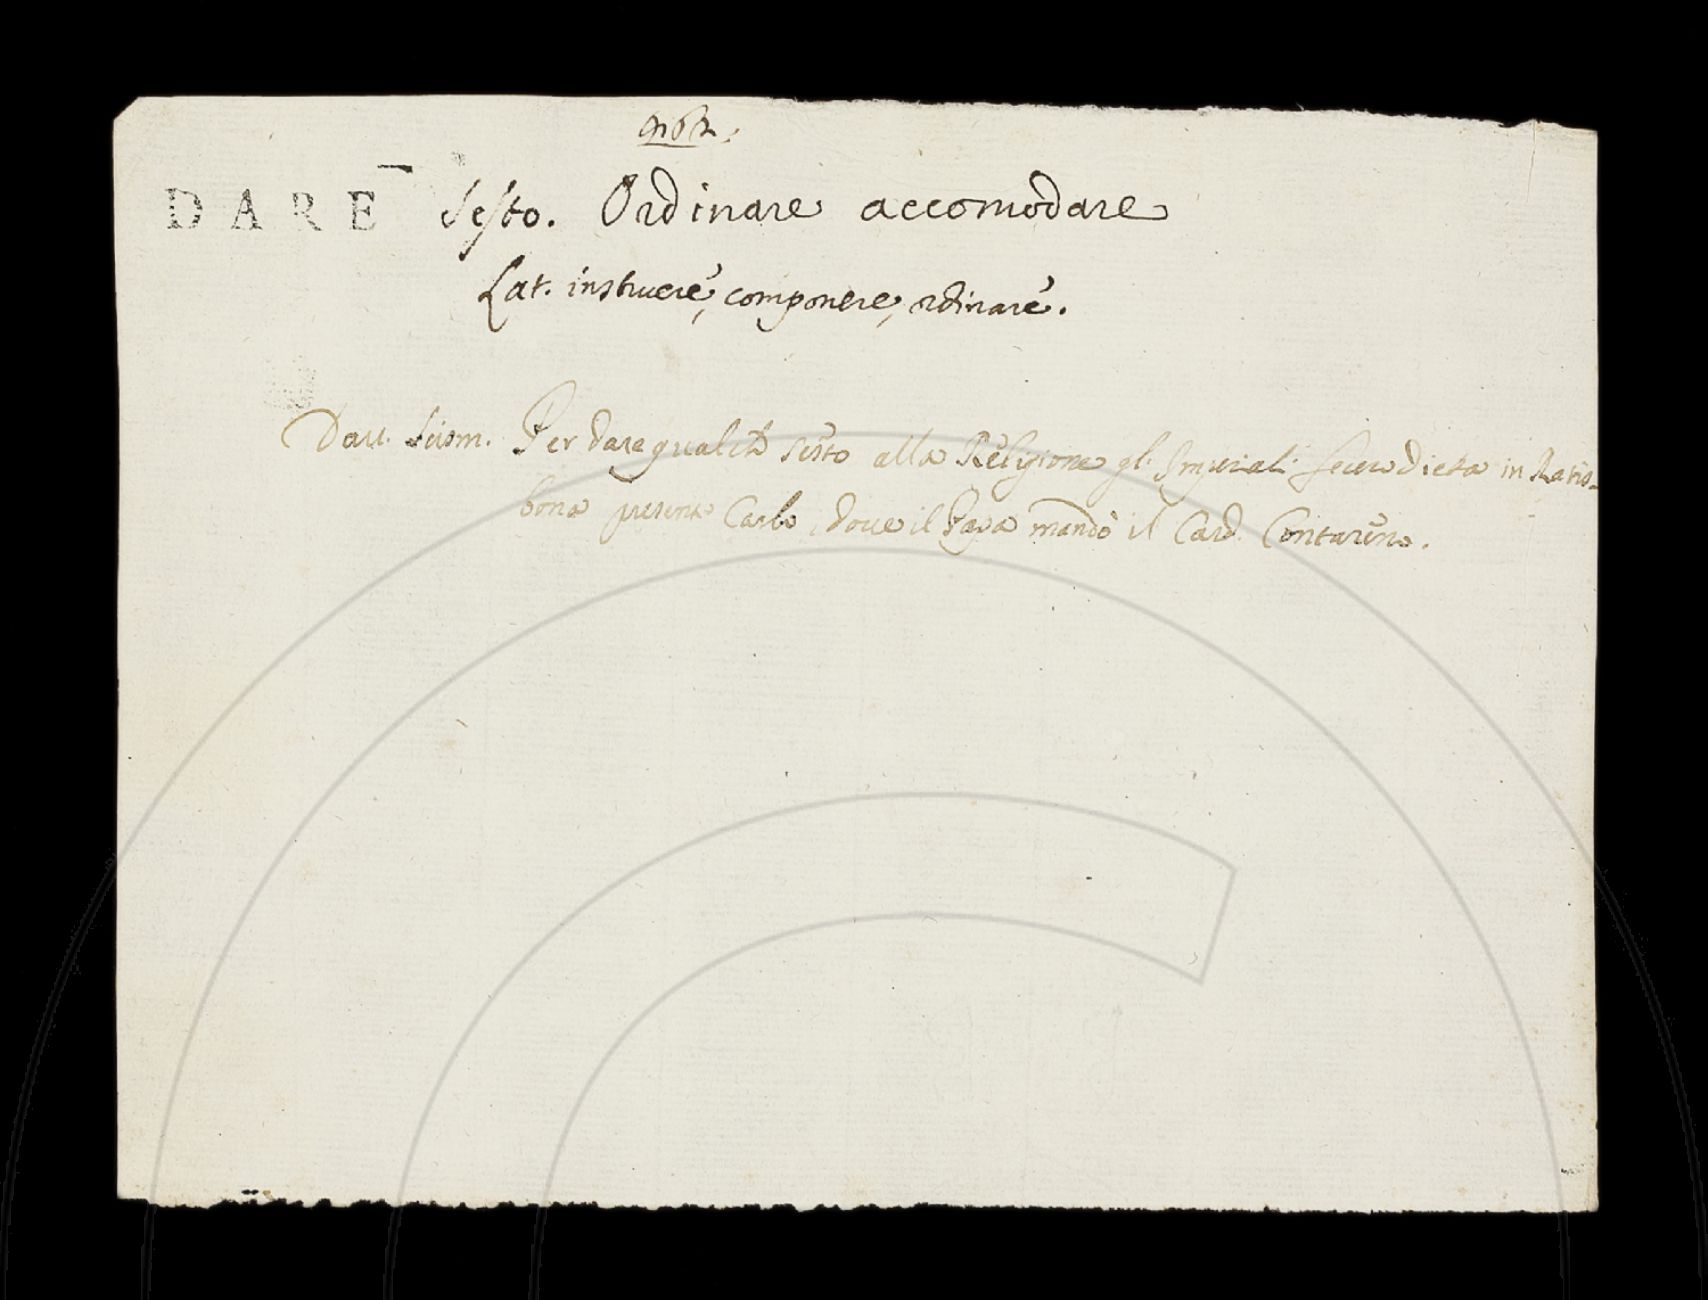 DARE sesto. Ordinare accomodare
Lat. instruere, componere, ordinare.
Dav. Scism. Per dare qualche sesto alla Religione gl'Imperiali fecero dieta in Ratis-
bona presente Carlo, doue il Papa mandò il Card. Contareno.